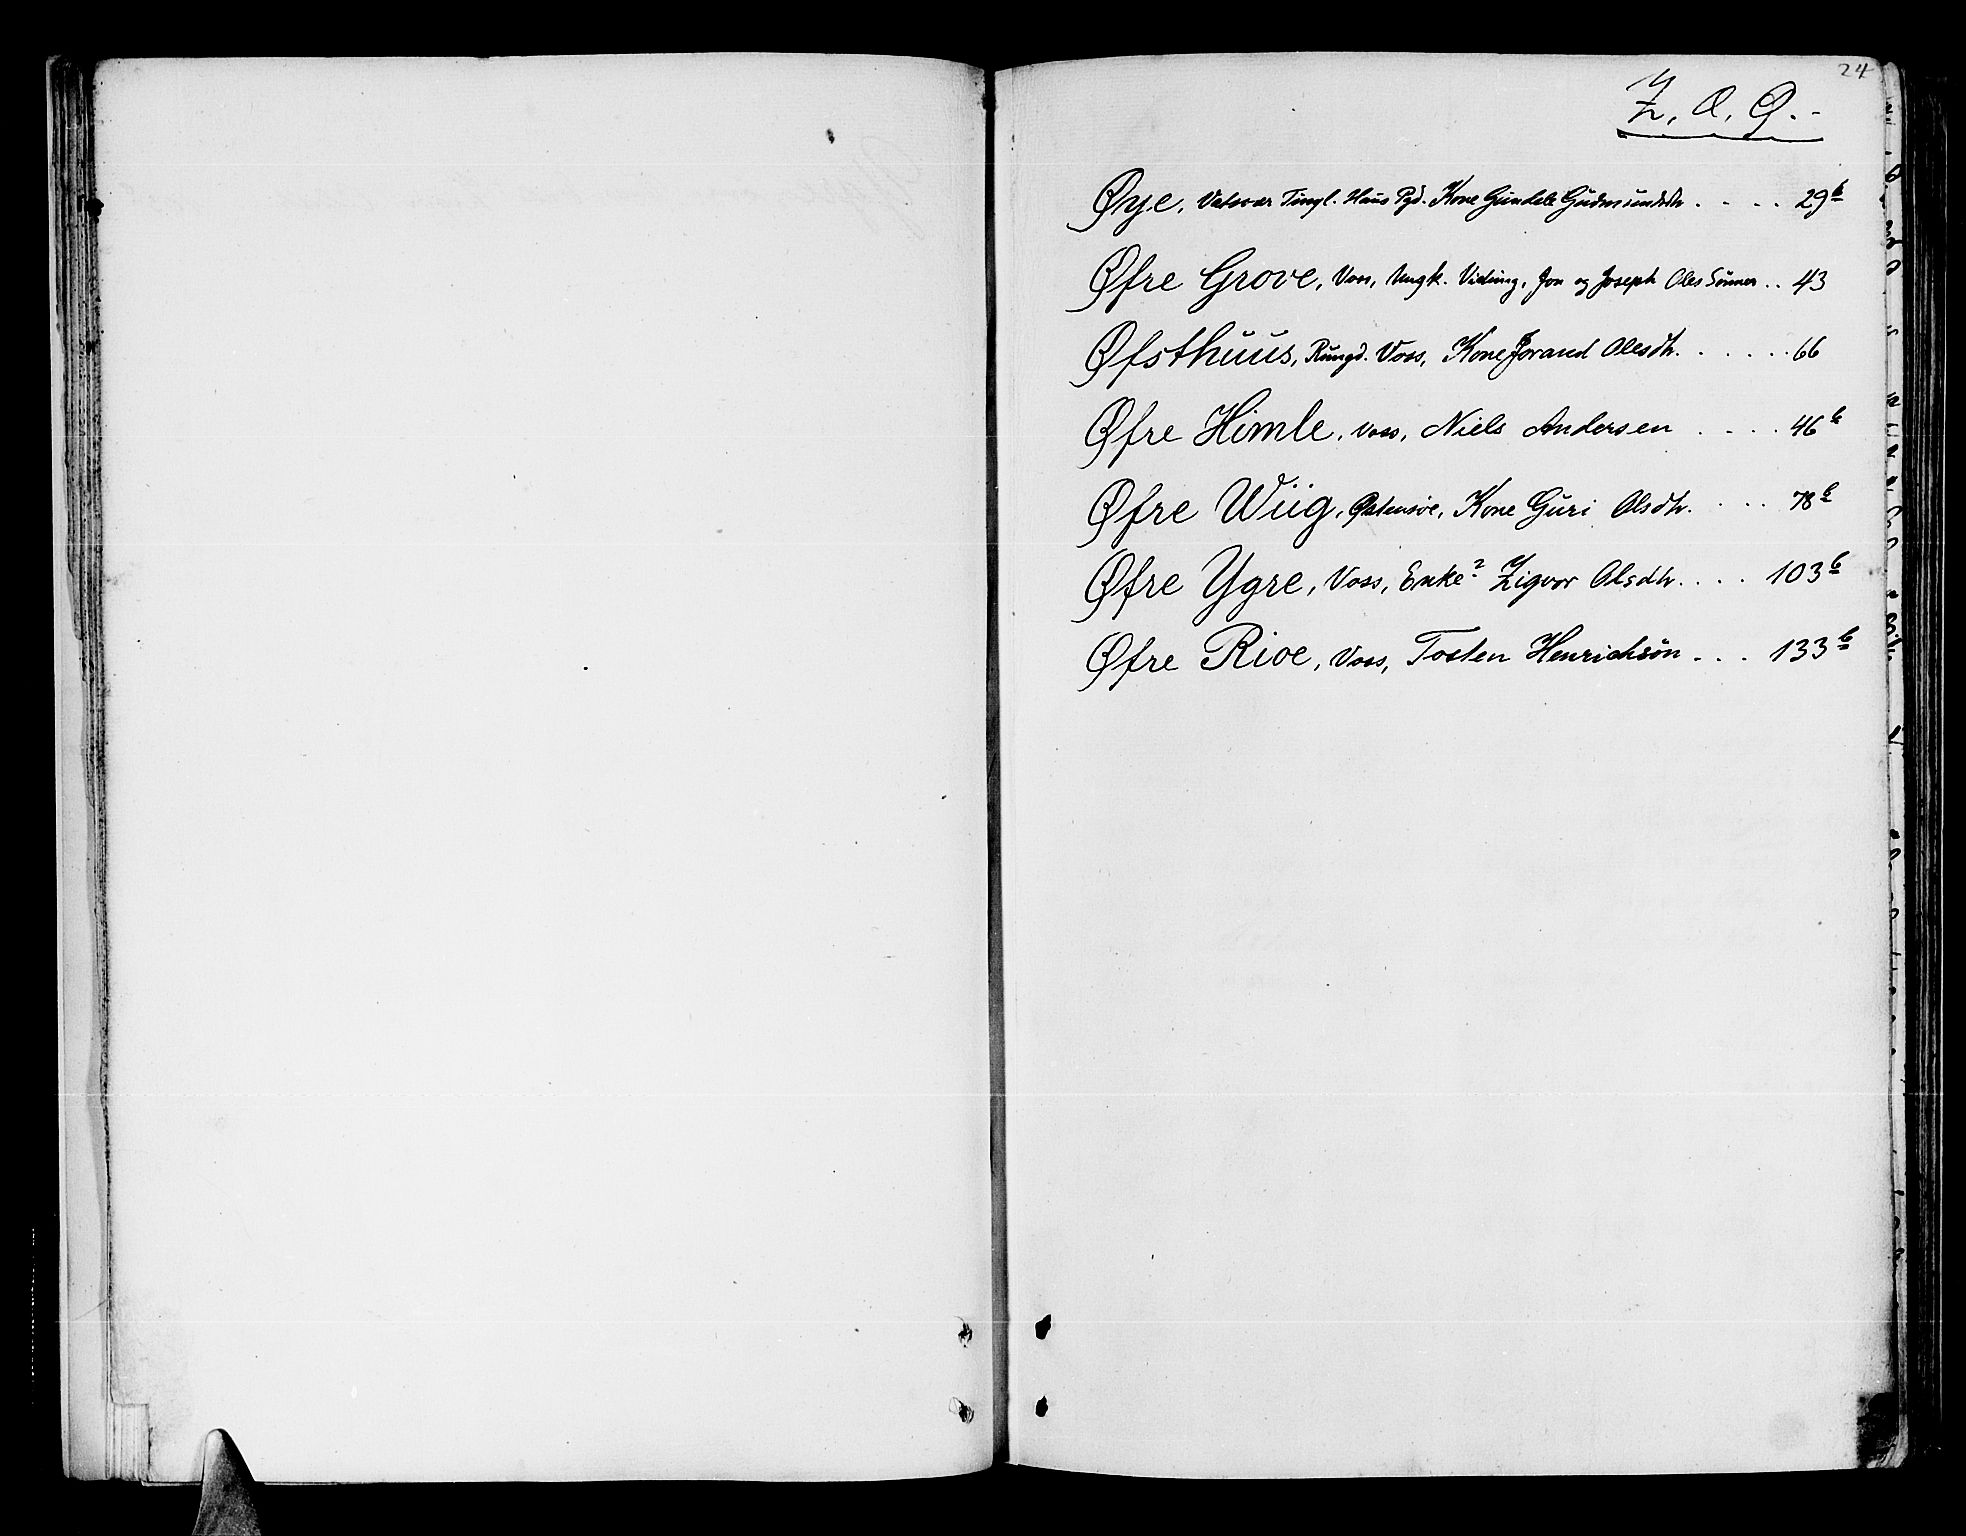 24
Z, Æ, Ø.-
Øye, Vatsvær Tingl. Haus Pgd. Kone Gundele Gudmundsdtr .... 29b
Øfre Grove, Voss, Ungk. Viding, Jon og Joseph Oles Sönner.. 43
Øfsthuus, Rungd. Voss, Kone Jorand Olesdtr. ..... 66
Øfre Himle, Voss, Niels Andersen .... 46b
Øfre Wiig, Østensöe, Kone Guri Olsdtr. ... 78b
Øfre Ygre, Voss, Enke? Zigvor Olsdtr.... 103b
Øfre Rioe, Voss, Tosten Henrichsön ... 133b